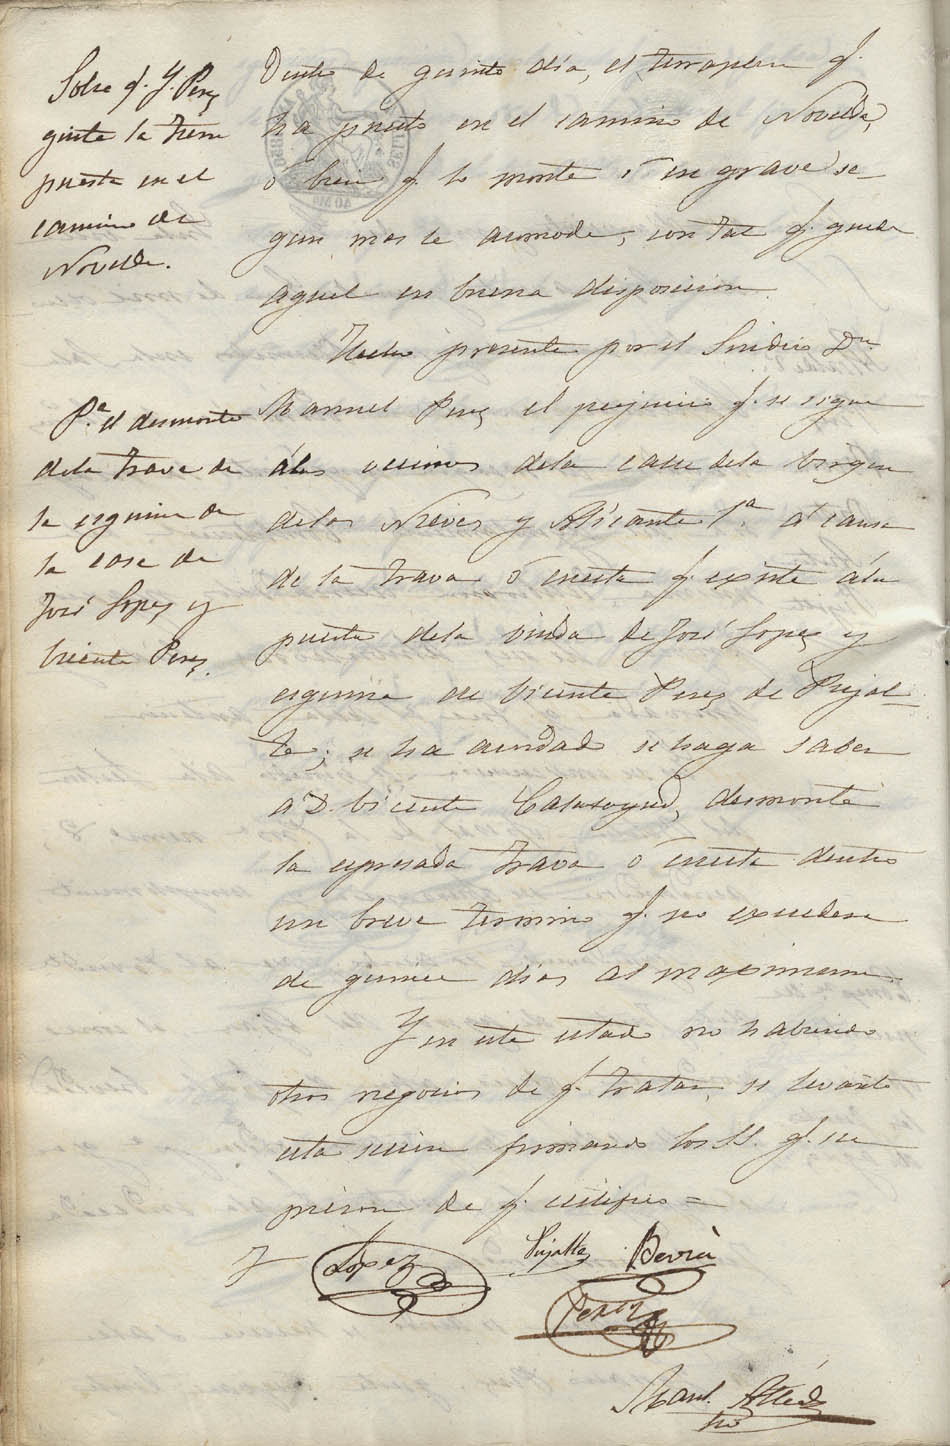 Sobre q. Y. Perez
quite la tierra
puesta en el
camino de
Novelda.
Dentro de quinto dia, el terraplen q.
ha puesto en el camino de Novelda,
ó bien q. lo monte ó en grave se-
gun mas le acomode, con tal q. quede
aquel en buena disposicion.
Hecho presente por el Sindico Dn.
Manuel Perez el perjuicio q. se sigue
álos vecinos dela calle dela Virgen
delas Nieves y Alicante 1ª. á causa
de la trava ó cuesta q. existe ála
puerta dela viuda de José Lopez y
esquina de Vicente Perez de Pujal-
te; se ha acordado se haga saber
á D. Vicente Calatayud, desmonte
la espresada trava ó cuesta dentro
un breve termino q. no excedera
de quince dias al maximum.
Pª. el desmonte
dela trava de
la esquina de
la casa de
José Lopez y
Vicente Perez.
Y en este estado no habiendo
otros negocios de q. tratar, se levantó
esta sesion firmando los SS. q. su
pieron de q. certifico =
Lopez
Pujalte
Berná
Perez
Manl.